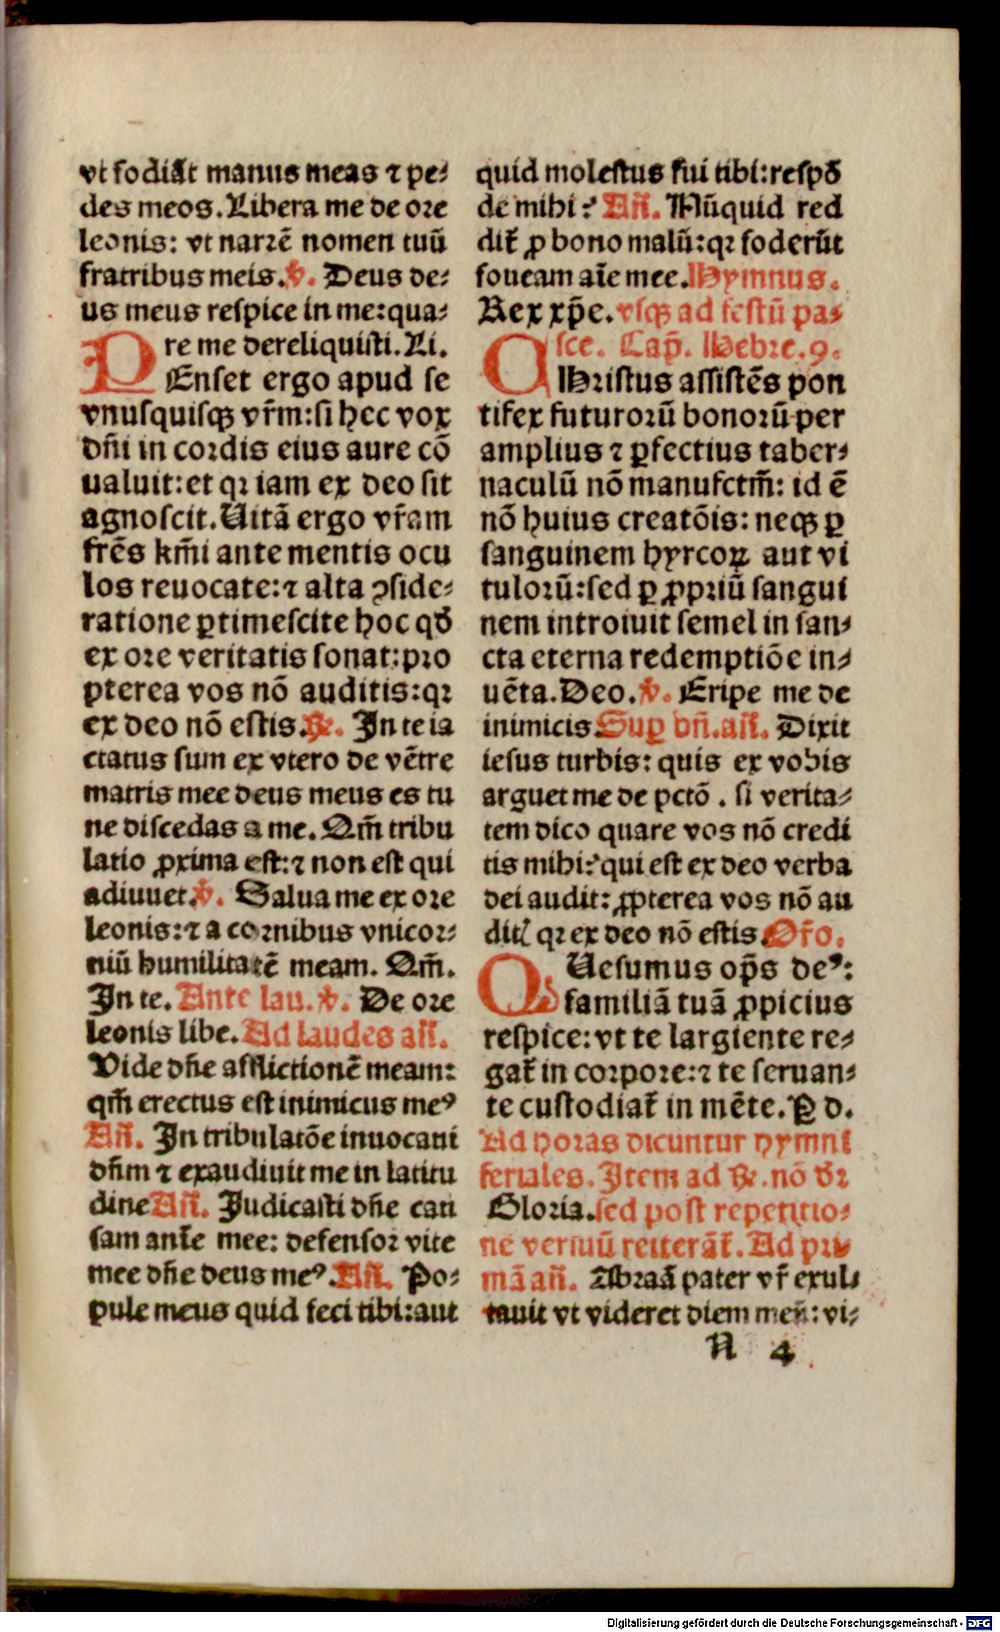 vt fodiãt manus meas ⁊ pe⸗
des meos. Libera me de ore
leonis: vt narrẽ nomen tuũ
fratribus meis. ℣. Deus de⸗
us meus respice in me: qua⸗
re me dereliquisti. Li.
PEnset ergo apud se
vnusquisqꝫ vr̃m: si hec vox
dñi in cordis eius aure cõ
ualuit: et qꝛ iam ex deo sit
agnoscit. Uitã ergo vr̃am
frẽs km̃i ante mentis ocu
los reuocate: ⁊ alta ꝯside⸗
ratione ꝑtimescite hoc qđ
ex ore veritatis sonat: pro
pterea vos nõ auditis: qꝛ
ex deo nõ estis. ℟. In te ia
ctatus sum ex vtero de vẽtre
matris mee deus meus es tu
ne discedas a me. Qm̃ tribu
latio ꝓxima est: ⁊ non est qui
adiuuet. ℣. Salua me ex ore
leonis: ⁊ a cornibus vnicor⸗
niũ humilitatẽ meam. Qm̃.
In te. Ante lau. ℣. De ore
leonis libe. Ad laudes añ.
Vide dñe afflictionẽ meam:
qm̃ erectus est inimicus meꝰ
Añ. In tribulatõe inuocaui
dñm ⁊ exaudiuit me in latitu
dine Añ. Judicasti dñe cau
sam anĩe mee: defensor vite
mee dñe deus meꝰ. Añ. Po⸗
pule meus quid feci tibi: aut
quid molestus fui tibi: respõ
de mihi? Añ. Nũquid red
dit᷑ ꝓ bono malũ: qꝛ foderũt
foueam aĩe mee. Hymnus.
Rex xp̃e. vsqꝫ ad festũ pa⸗
sce. Cap̃. Hebre. 9.
CHristus assistẽs pon
tifex futurorũ bonorũ per
amplius ⁊ ꝑfectius taber⸗
naculũ nõ manufctm̃: id ẽ
nõ huius creatõis: neqꝫ ꝑ
sanguinem hyrcoꝝ aut vi
tulorũ: sed ꝑ ꝓpriũ sangui
nem introiuit semel in san⸗
cta eterna redemptiõe in⸗
uẽta. Deo. ℣. Eripe me de
inimicis Suꝑ bñ. añ. Dixit
iesus turbis: quis ex vobis
arguet me de pctõ. si verita⸗
tem dico quare vos nõ credi
tis mihi? qui est ex deo verba
dei audit: ꝓpterea vos nõ au
ditꝭ qꝛ ex deo nõ estis. Or̃o.
QUesumus op̃s deꝰ:
familiã tuã ꝓpicius
respice: vt te largiente re⸗
gat᷑ in corpore: ⁊ te seruan⸗
te custodiat᷑ in mẽte. Ꝑ d.
Ad horas dicuntur hymni
feriales. Item ad ℟. nõ dr̃
Gloria. sed post repetitio⸗
ne versuũ reiterãt᷑. Ad pri
mã añ. Abraã pater vr̃ exul⸗
tauit vt videret diem meũ: vi⸗
N 4
Digitalisierung gefördert durch die Deutsche Forschungsgemeinschaft - DFG